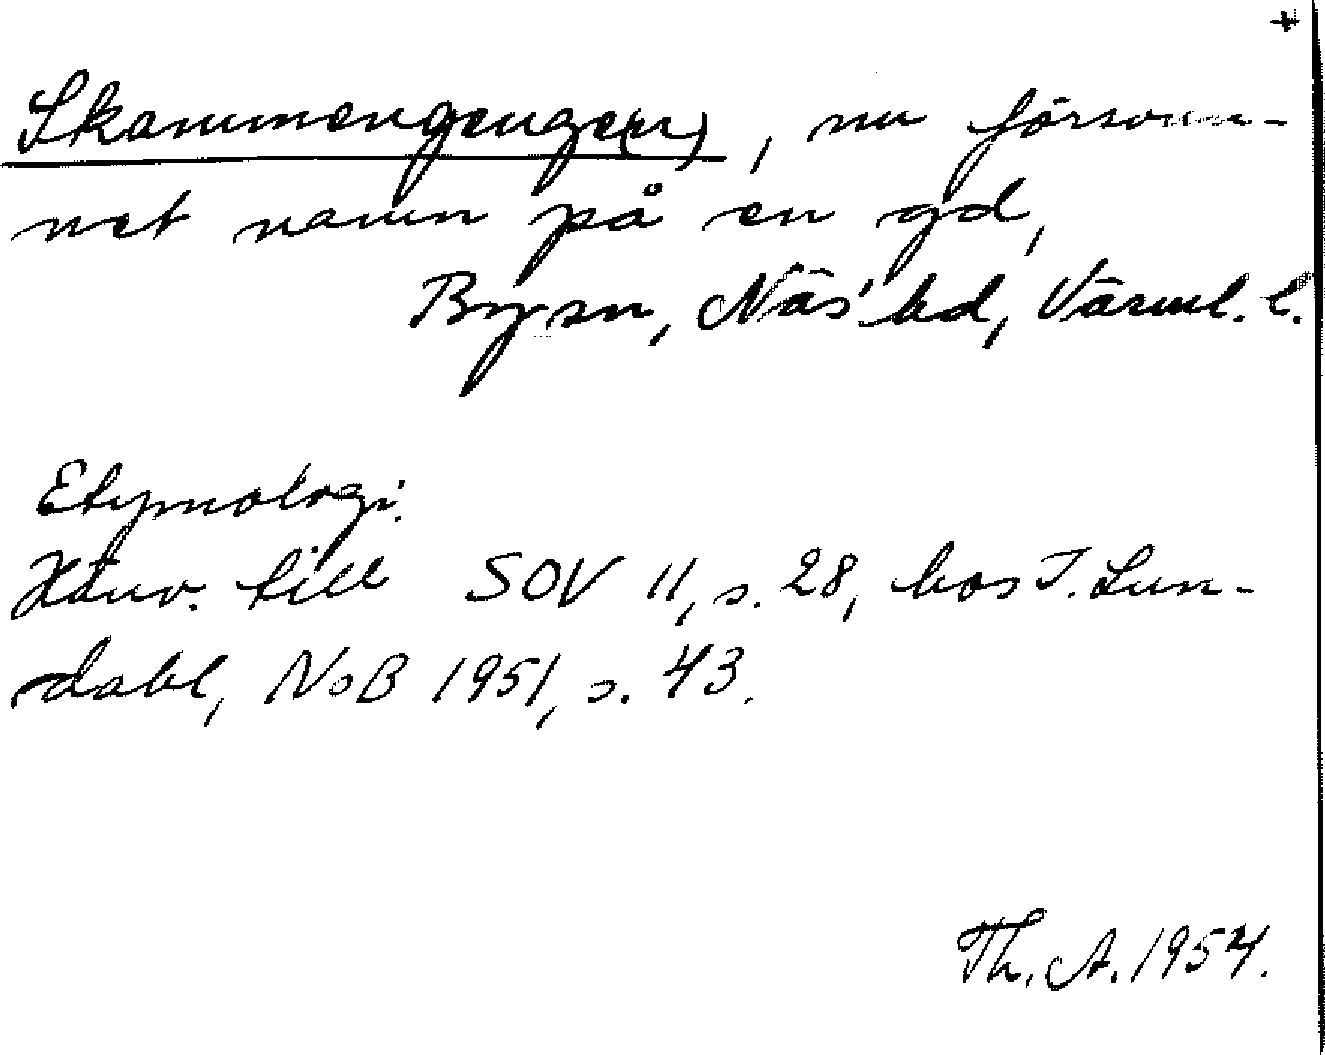 +
Skammengenge(n), nu försvun-
net namn på en gd,
By sn, Näs' hd, Värml. l.
Etymologi.
Hänv. till SOV 11, s. 28, hos I. Lun-
dahl, NoB 1951, s. 43.
Th. A. 1954.